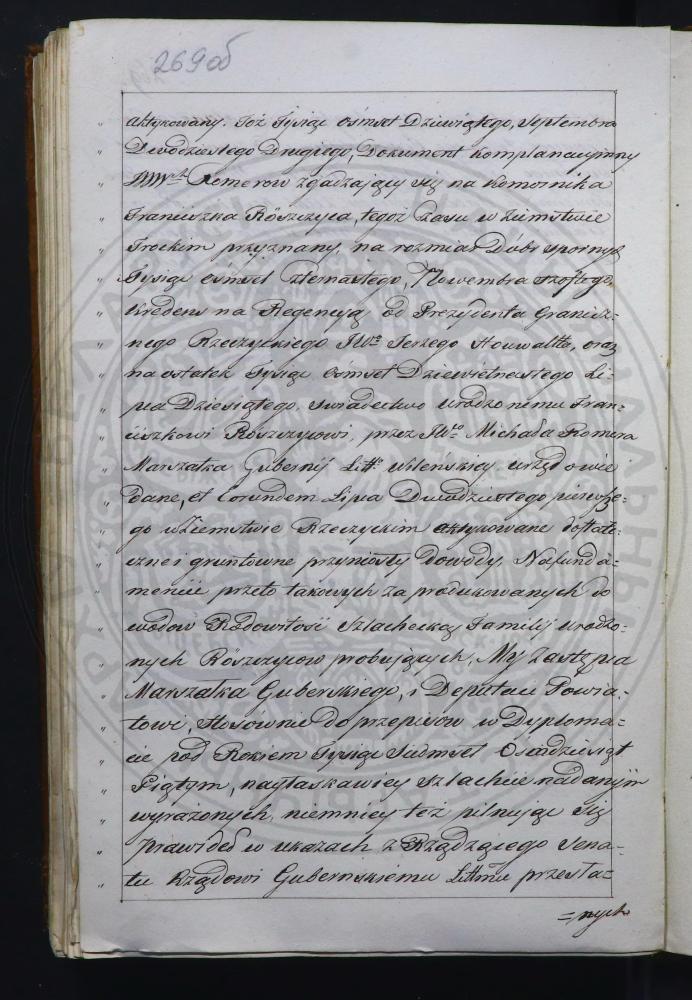 269об
aktykowany. Toż Tysiąc ośmset Dziewiątego, Septembra
Dwódziestego Drugiego, Dokument komplanacyinny
JWWch Romerow zgadzaiący się na Komornika
Franciszka Rószczyca, tegoż czasu w Ziemstwie
Trockim przyznany, na rozmiar Dóbr spornych
Tysiąc ośmset czternastego, Nowembra szóstego,
kredens na Regencyą od Prezydenta Granicz-
nego Rzeczyckiego JWo Jerzego Houwaltta, oraz
na ostatek Tysiąc Ośmset Dziewietnastego Li-
pca Dziesiątego, swiadectwo urodzonemu Fran-
ciszkowi Rószczycowi, przez JWo Michała Romera
Marszałka Gubernij Litt: Wileńskiey urzędownie
dane, et Eorundem Lipca Dwudziestego pierwsze-
go w Ziemstwie Rzeczyckim aktykowane dostate-
czne i gruntowne przyniosły dowody. Na funda-
mencie przeto takowych za produkowanych do
wodow Rodowitość szlachecką Familij Urodzo-
nych Rószczycow probuiących, My Zastępca
Marszałka Guberskiego, i Deputaci Powia-
towi, stosównie do przepisów w Dyploma-
cie pod Rokiem Tysiąc Siedmset Ośmdziesiąt
Piątym, nayłaskawiey szlachcie nadanym
wyrażonych, niemniey też pilnuiąc się
prawideł w ukazach z Rządzącego Sena-
tu Rządowi Gubernskiemu Littmu przesła-
=nych